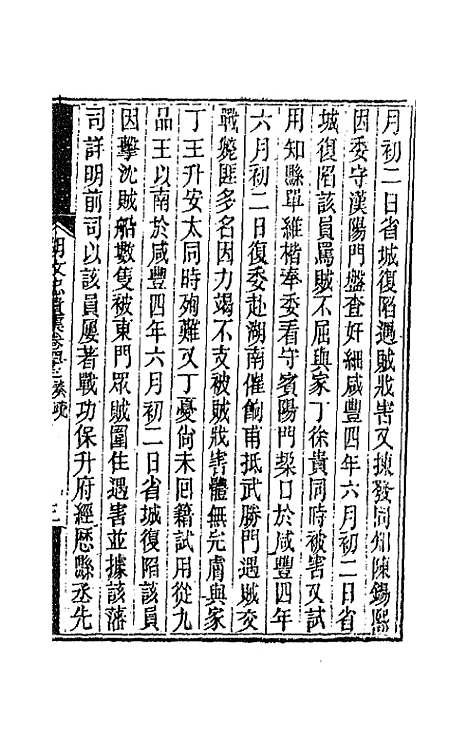 月初二日省城復陷遇賊戕害又揀發同知陳錫熙
因委守漢陽門盤查奸細咸豐四年六月初二日省
城復陷該員罵賊不屈與家丁徐貴同時被害又試
用知縣單維楷奉委看守賓陽門梁口於咸豐四年
六月初二日復委赴湖南催餉甫抵武勝門遇賊交
戰斃匪多名因力竭不支被賊戕害體無完膚與家
丁王升安太同時殉難又丁憂尚未回籍試用從九
品王以南於咸豐四年六月初二日省城復陷該員
因擊沈賊船數隻被東門眾賊圍住遇害並據該藩
司詳明前司以該員屢著戰功保升府經歷縣丞先
胡文忠遺集卷四十三奏疏
三